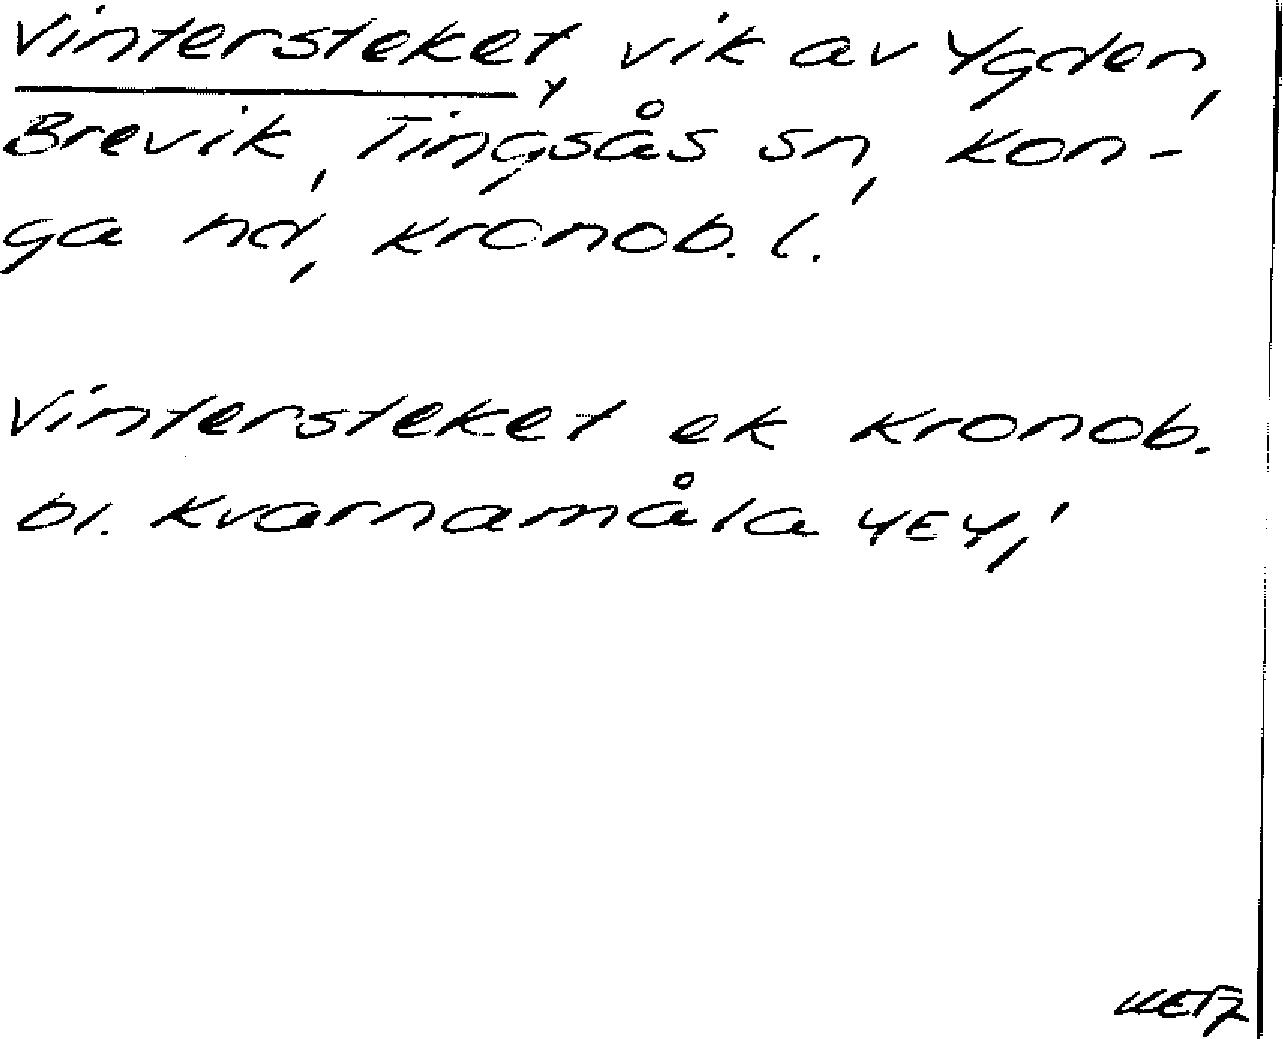 Vintersteket, vik av Ygden,
Brevik, Tingsås sn, Kon-
ga hd, Kronob. l.
Vintersteket ek Kronob.
bl. Kvarnamåla 4E4,